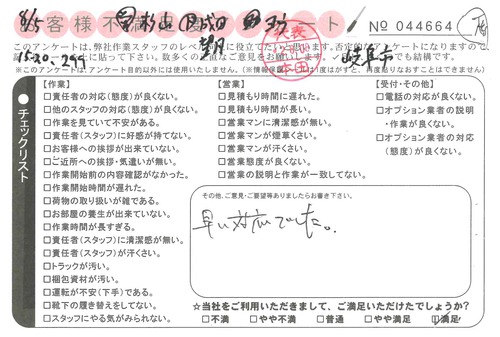 お客様不満足度アンケート
№ 044664
8/5
15-20-299
岐阜市
このアンケートは、弊社作業スタッフのレベル
※このアンケートは、アンケート目的以外には使用いたしません。
チェックリスト
【作業】
□責任者の対応(態度)が良くない。
□他のスタッフの対応(態度)が良くない。
□作業を見ていて不安がある。
□責任者(スタッフ)に好感が持てない。
□お客様への挨拶が出来ていない。
□ご近所への挨拶・気遣いが無い。
□作業開始前の内容確認がなかった。
□作業開始時間が遅れた。
□荷物の取り扱いが雑である。
□お部屋の養生が出来ていない。
□作業時間が長すぎる。
□責任者(スタッフ)に清潔感が無い。
□責任者(スタッフ)が汗くさい。
□トラックが汚い。
□梱包資材が汚い。
□運転が不安(下手)である。
□靴下の履き替えをしてない。
□スタッフにやる気がみられない。
【営業】
□見積もり時間に遅れた。
□見積もり時間が長い。
□営業マンに清潔感が無い。
□営業マンが煙草くさい。
□営業マンが汗くさい。
□営業態度が良くない。
□営業の説明と作業が一致してない。
【受付・その他】
□電話の対応が良くない。
□オプション業者の説明
・作業が良くない。
□オプション業者の対応
(態度)が良くない。
その他、ご意見・ご要望等ありましたらお書き下さい。
早い対応でした。
☆当社をご利用いただきまして、ご満足いただけたでしょうか?
□不満 □やや不満 □普通 □やや満足 □満足